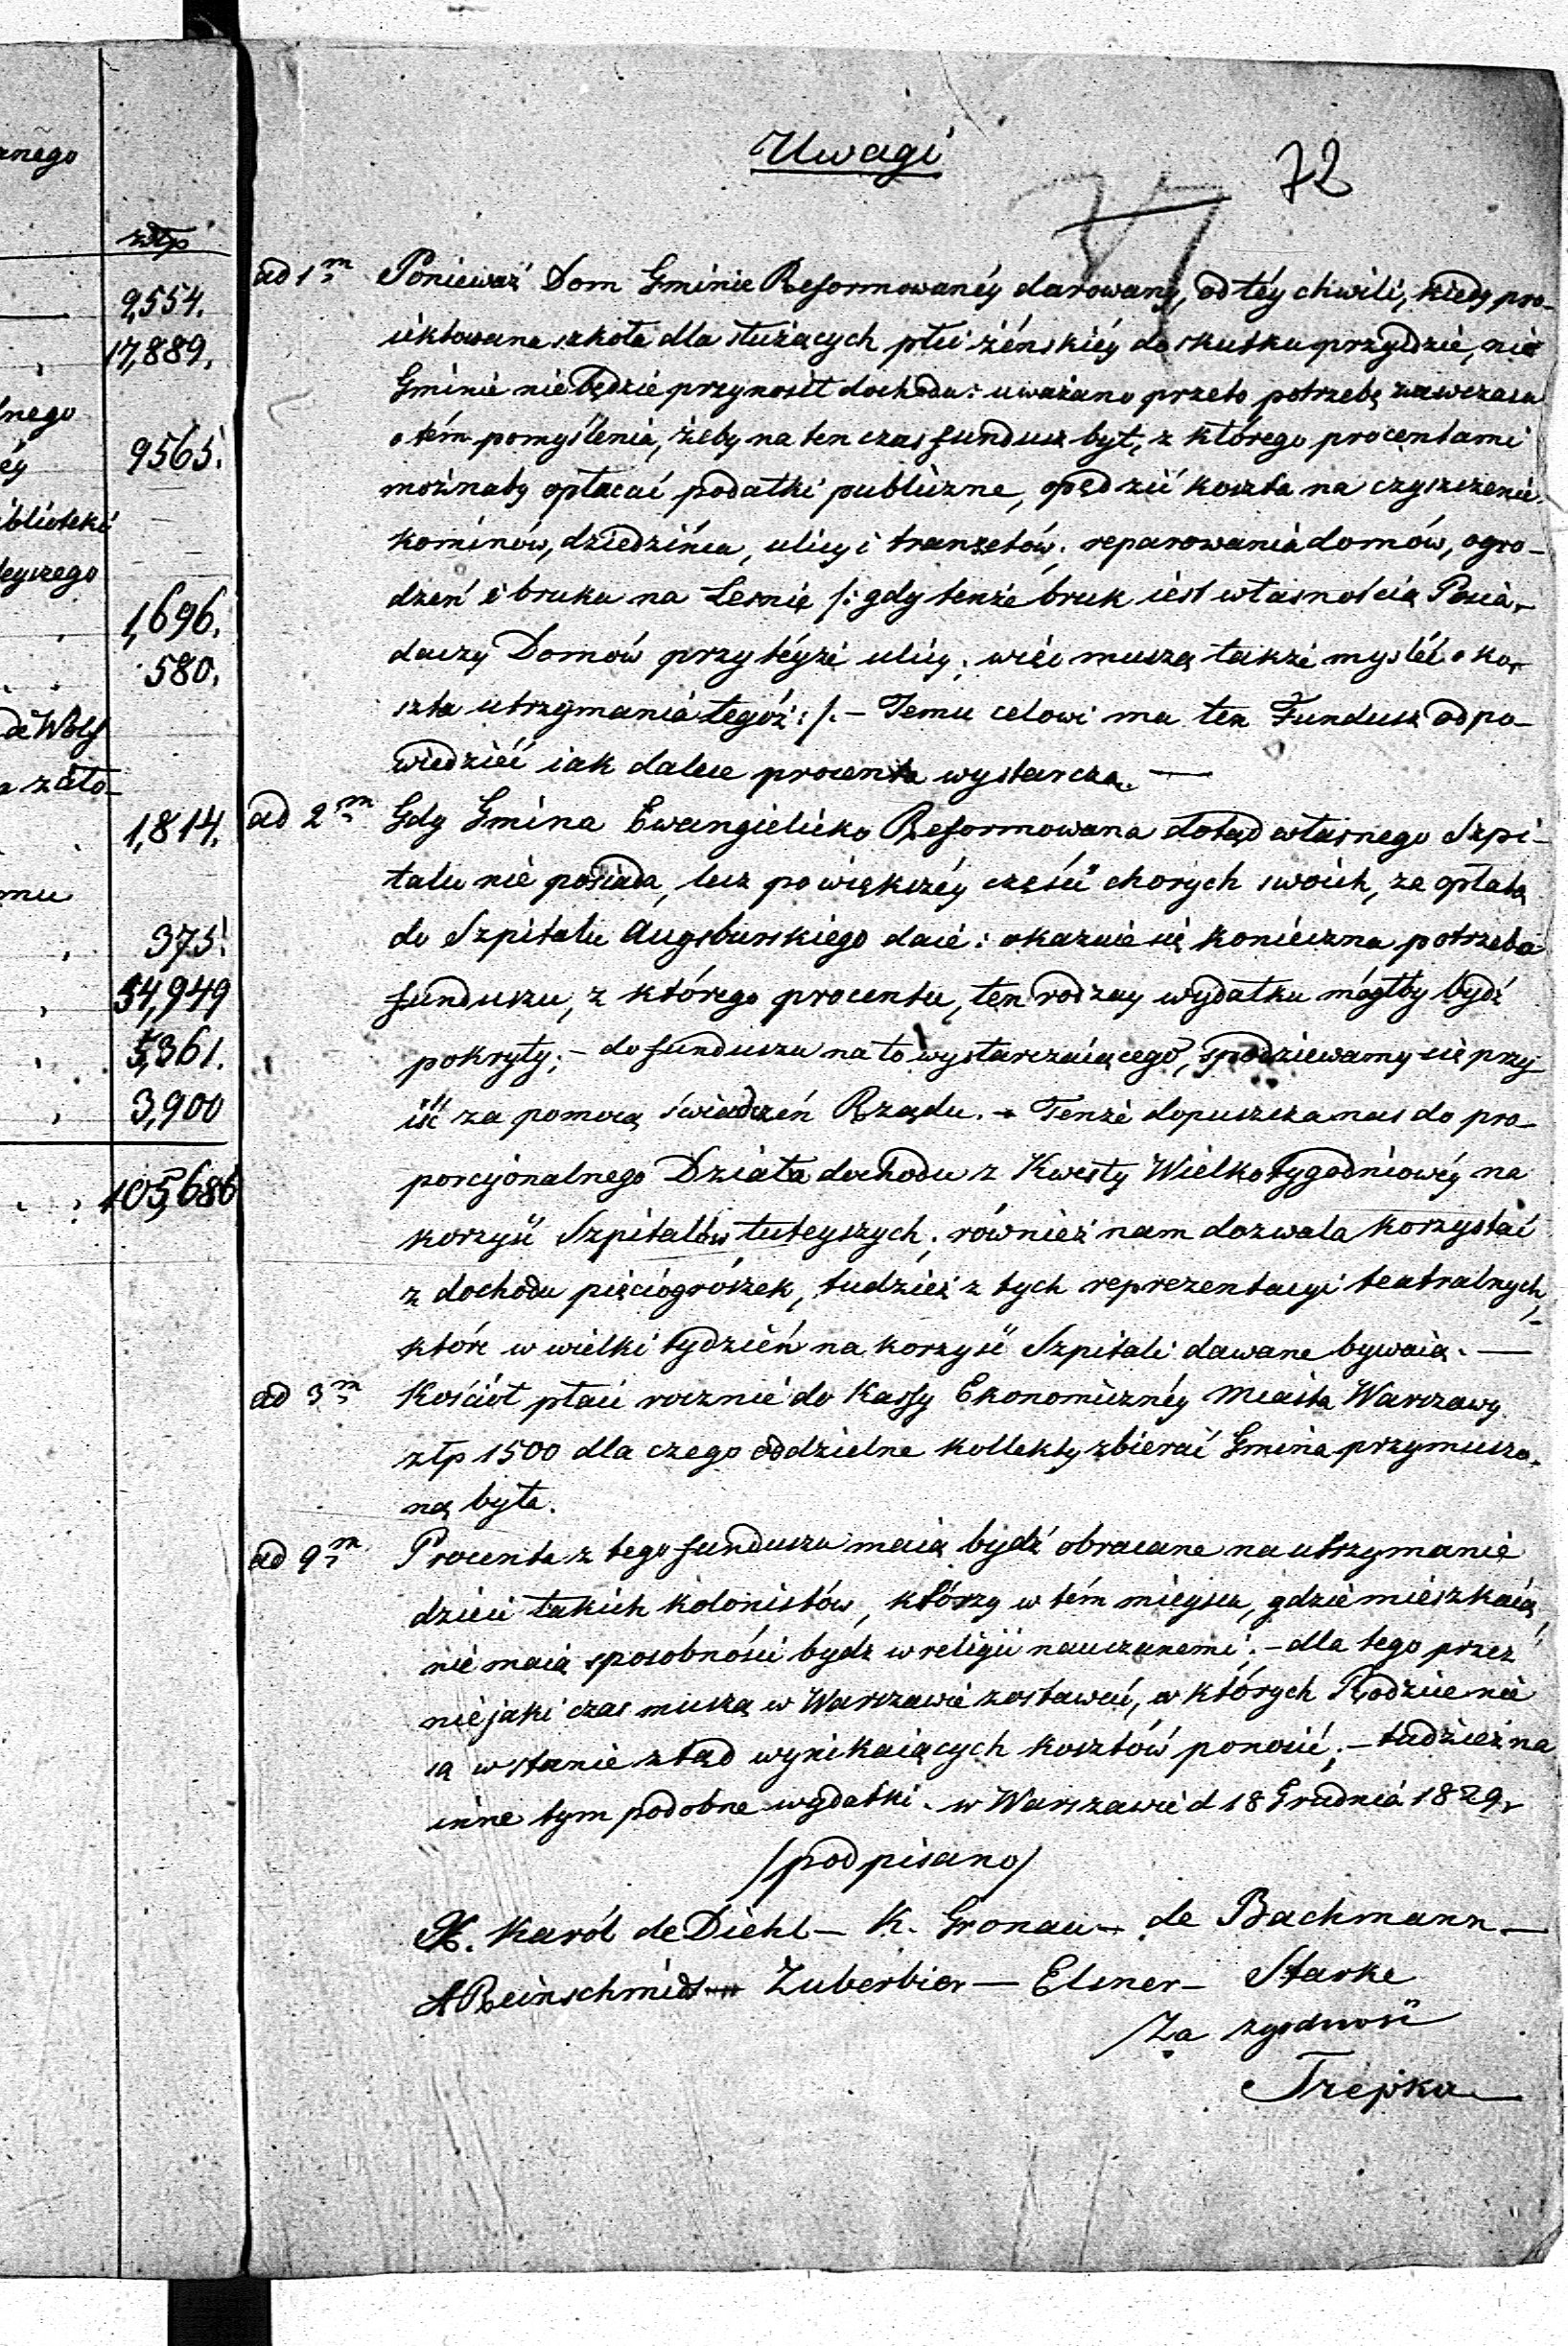 anego
złtp
9,554.
17,889.
lnego
éy
9565.
iblioteki
teyszego
1,696.
580.
de Wolf
a zało-
1,814.
mu
375.
54,949
5,361.
3,900
105,686
Uwagi
72
ad 1m Ponieważ Dom Gminie Reformowanéy darowany, od téy chwili, kiedy pro-
iektowana szkoła dla służących płci żeńskiéy do skutku przydzie, nic
Gminie nie będzie przynosił dochodu: uważano przeto potrzebę zawczasu
o tém pomyślenia, żeby na ten czas fundusz był, z którego procentami
możnaby opłacać podatki publiczne, opędzić koszta na czyszczenie
kominów, dziedzińca, ulicy i tranzetów, reparowania domów, ogro-
dzeń i bruku na Lesnie /: gdy tenże bruk iest własnością Posia-
daczy Domów przy téyże ulicy, więc muszą także myśléć o ko-
szta utrzymania tegóż :/. – Temu celowi ma ten Fundusz odpo-
wiedzieć iak dalece procenta wystarczą. —
ad 2m Gdy Gmina Ewangielicko Reformowana dotąd własnego Szpi-
talu nie posiada, lecz po większéy części chorych swoich, za opłatą
do Szpitalu Augsburskiego daie: okazuie się konieczna potrzeba
funduszu, z którego procentu, ten rodzay wydatku mógłby bydź
pokryty; – do funduszu na to wystarczaiącego, spodziewamy się przy
iść za pomocą świadczeń Rządu. – Tenże dopuszcza nas do pro-
porcyonalnego Działa dochodu z Kwesty Wielkotygodniowéy na
korzyść Szpitalów tuteyszych, również nam dozwala korzystać
z dochodu pięciogrószek, tudzież z tych reprezentacyi teatralnych,
które w wielki tydzień na korzyść Szpitali dawane bywaią. —
ad 3m Kościół płaci rocznie do Kassy Ekonomicznéy Miasta Warszawy
złp 1500 dla czego oddzielne kollekty zbierać Gmina przymuszo-
ną była.
ad 9m Procenta z tego funduszu maią bydź obracane na utrzymanie
dzieci takich kolonistów, którzy w tém mieyscu, gdzie mieszkaią,
nie maią sposobności bydz w religii nauczanemi; – dla tego przez
niejaki czas muszą w Warszawie zostawać, a których Rodzice nie
są w stanie ztąd wynikaiących kosztów ponosić; – tudzież na
inne tym podobne wydatki. w Warszawie d 18 Grudnia 1829 r
/podpisano/
X. Karól de Diehl – K. Gronau – de Bachmann –
A Reinschmidt – Zuberbier – Elsner – Starke
Za zgodność
Trepka